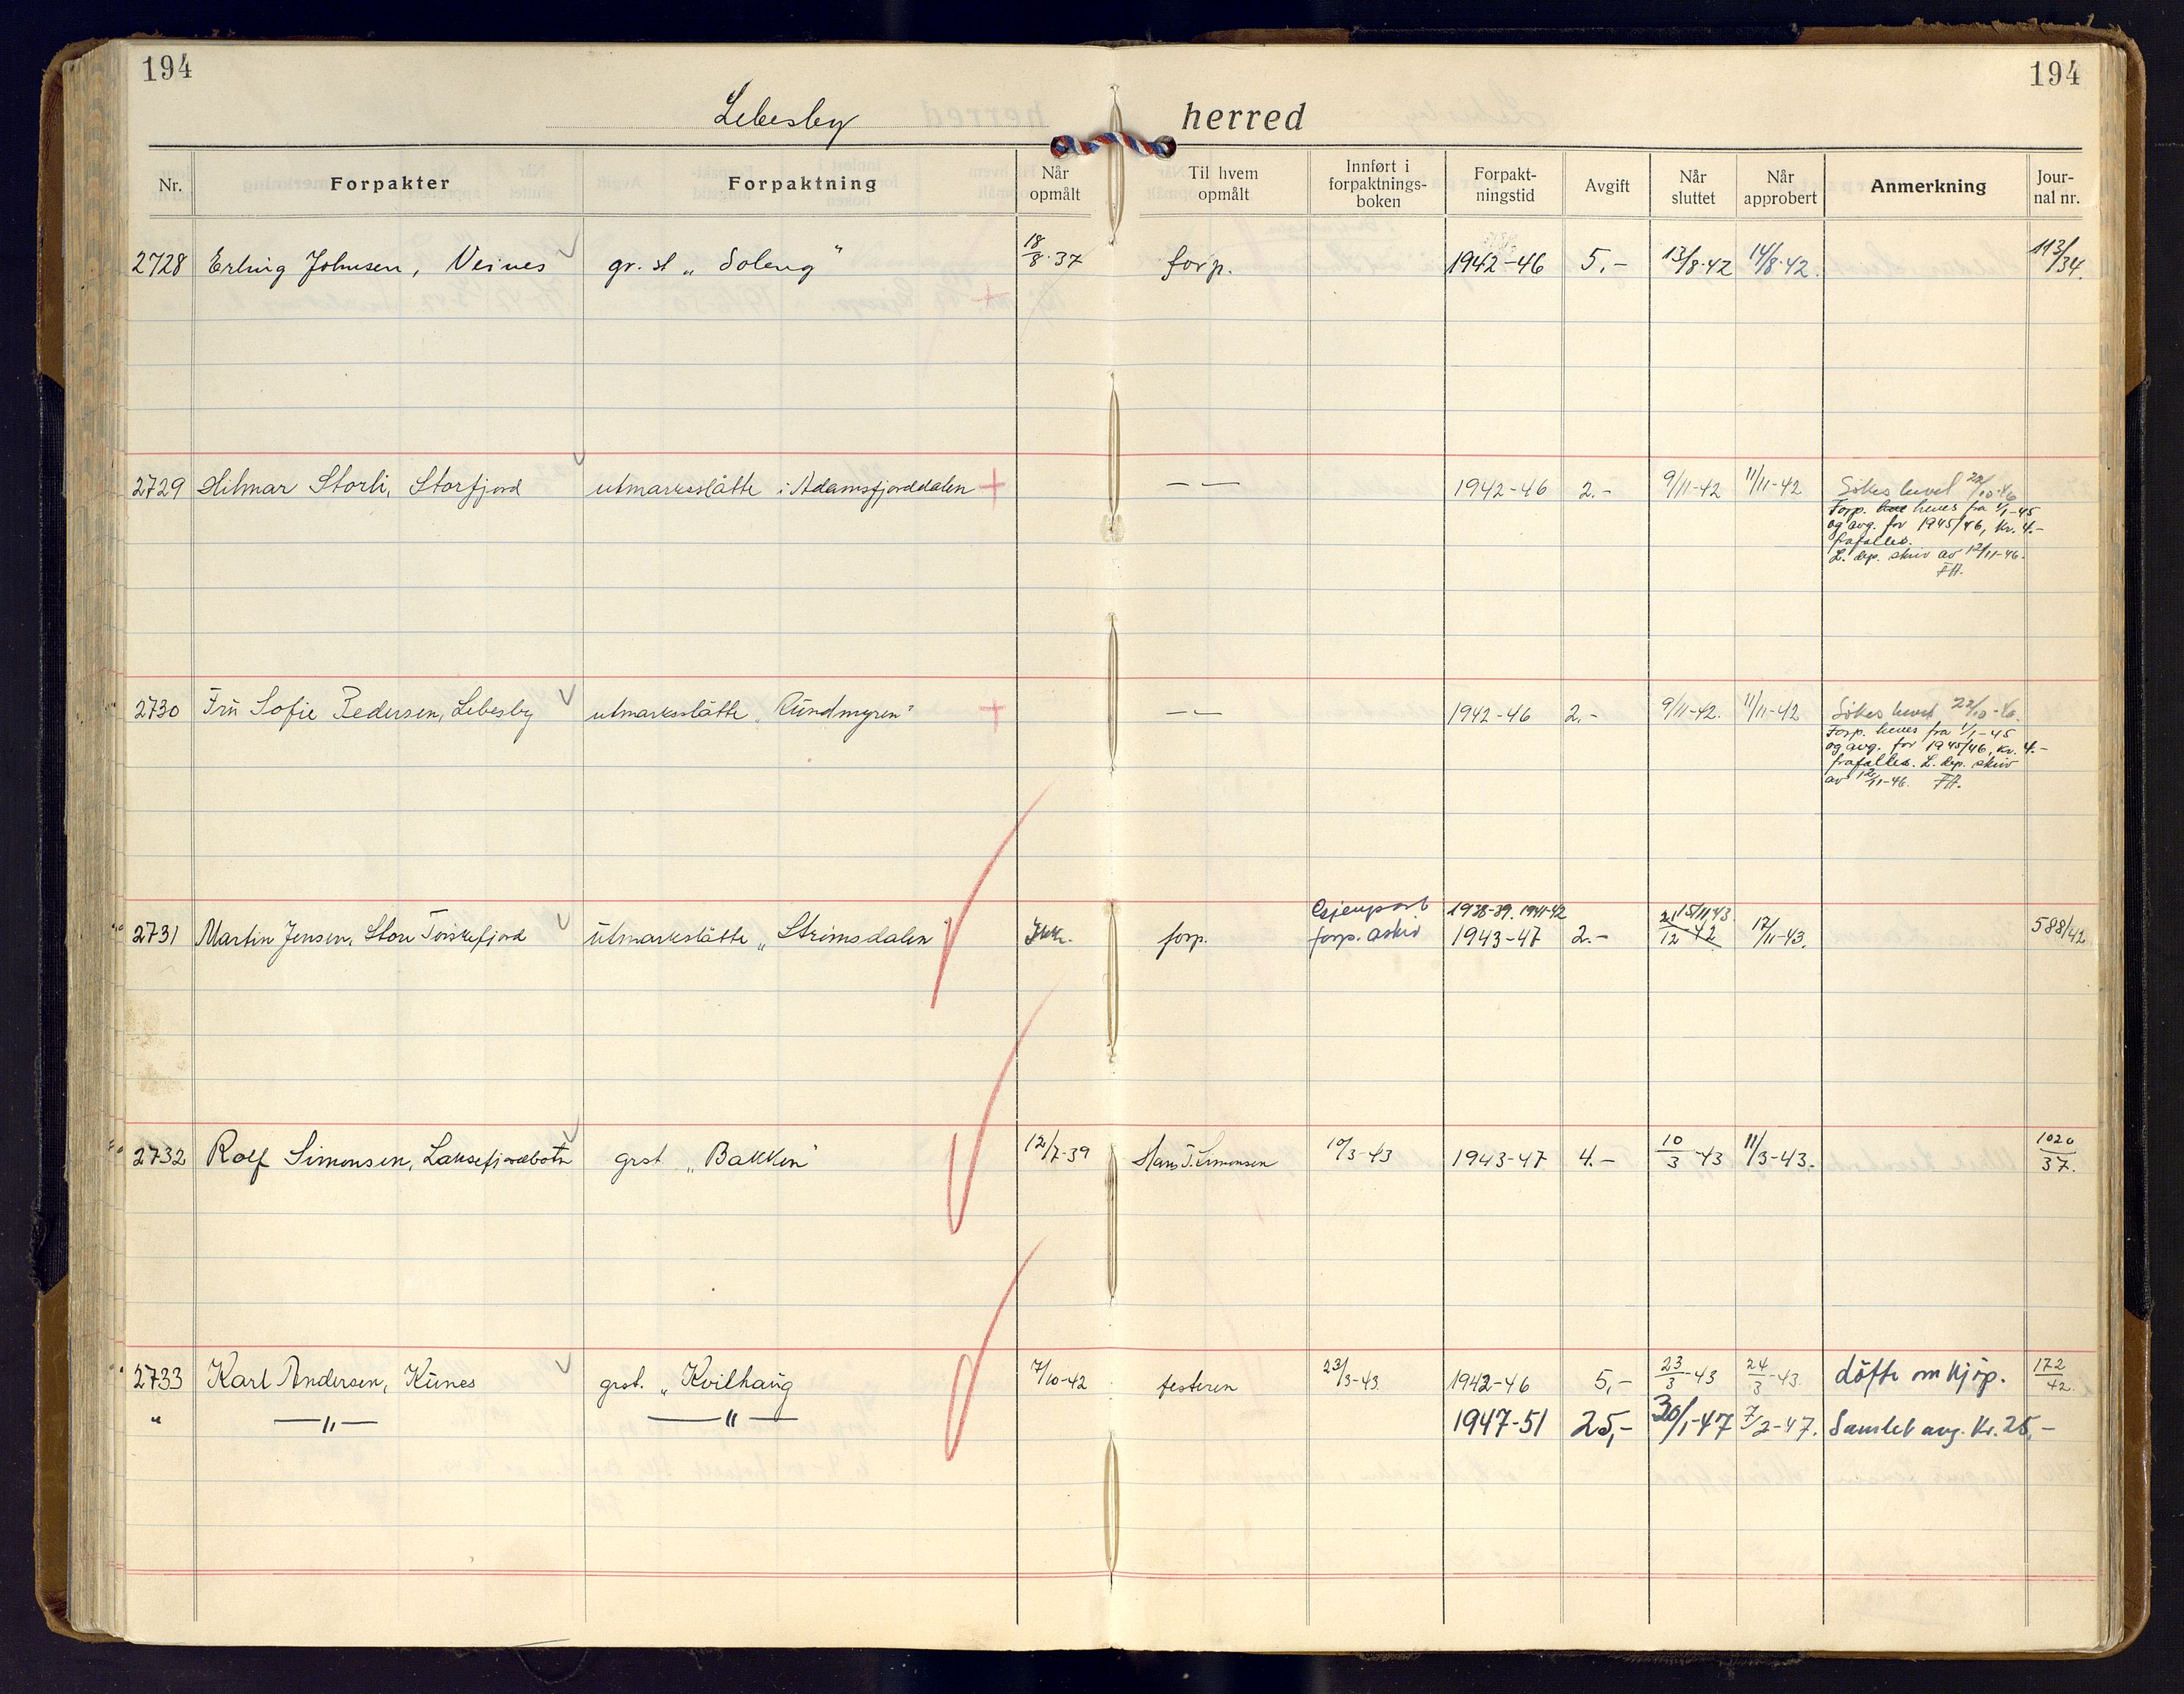 194
194
Lebesby herred
Nr. Forpakter Forpaktning Når opmålt Til hvem opmålt Innført i forpaktnings-boken Forpakt-ningstid Avgift Når sluttet Når approbert Anmerkning Jour-nal nr.
2728 Erling Johnsen, Veines gr. st „Soleng" 18/8-37 forp. 1942-46 5,- 13/8-42 14/8-42. 113/34.
2729 Hilmar Storli, Storfjord utmarksslåtte i Adamsfjorddalen + — — 1942-46 2.- 9/11-42 11/11-42 Søkes hevet 22/10-46
Forp. heves fra 1/1-45
og avg. for 1945/46, kr. 4.-
frafalles.
L. dep. skriv av 12/11-46.
FH.
2730 Fru Sofie Pedersen, Lebesby utmarksslåtte „Rundmyren" + — — 1942-46 2.- 9/11-42. 11/11-42 Søkes hevet 22/10-46.
Forp. heves fra 1/1-45
og avg. for 1945/46, kr. 4.-
frafalles. L. dep. skriv
av 12/11-46. FH.
forp. 1938-39. 1941-42 15/11,43.
2731 Martin Jensen, Store Torskefjord utmarkslåtte „ Ikk. forp. 1943-47 2.- 21/12-42 17/11-43. 588/42
2732 Rolf Simonsen, Laksefjordbotn grst „Bakken" 12/7-39 Hans T. Simonsen 10/3-43 1943-47 4.- 10/3-43 11/3-43. 1020/37.
2733 Karl Andersen, Kunes grst. „Kvilhaug 7/10-42 festeren 23/3-43 1942-46 5,- 23/3-43 24/3-43. Löfte om kjöp. 172/42.
" —"— —"— 1947-51 25,- 30/1-47 7/2-47. Samlet avg. kr. 25,-